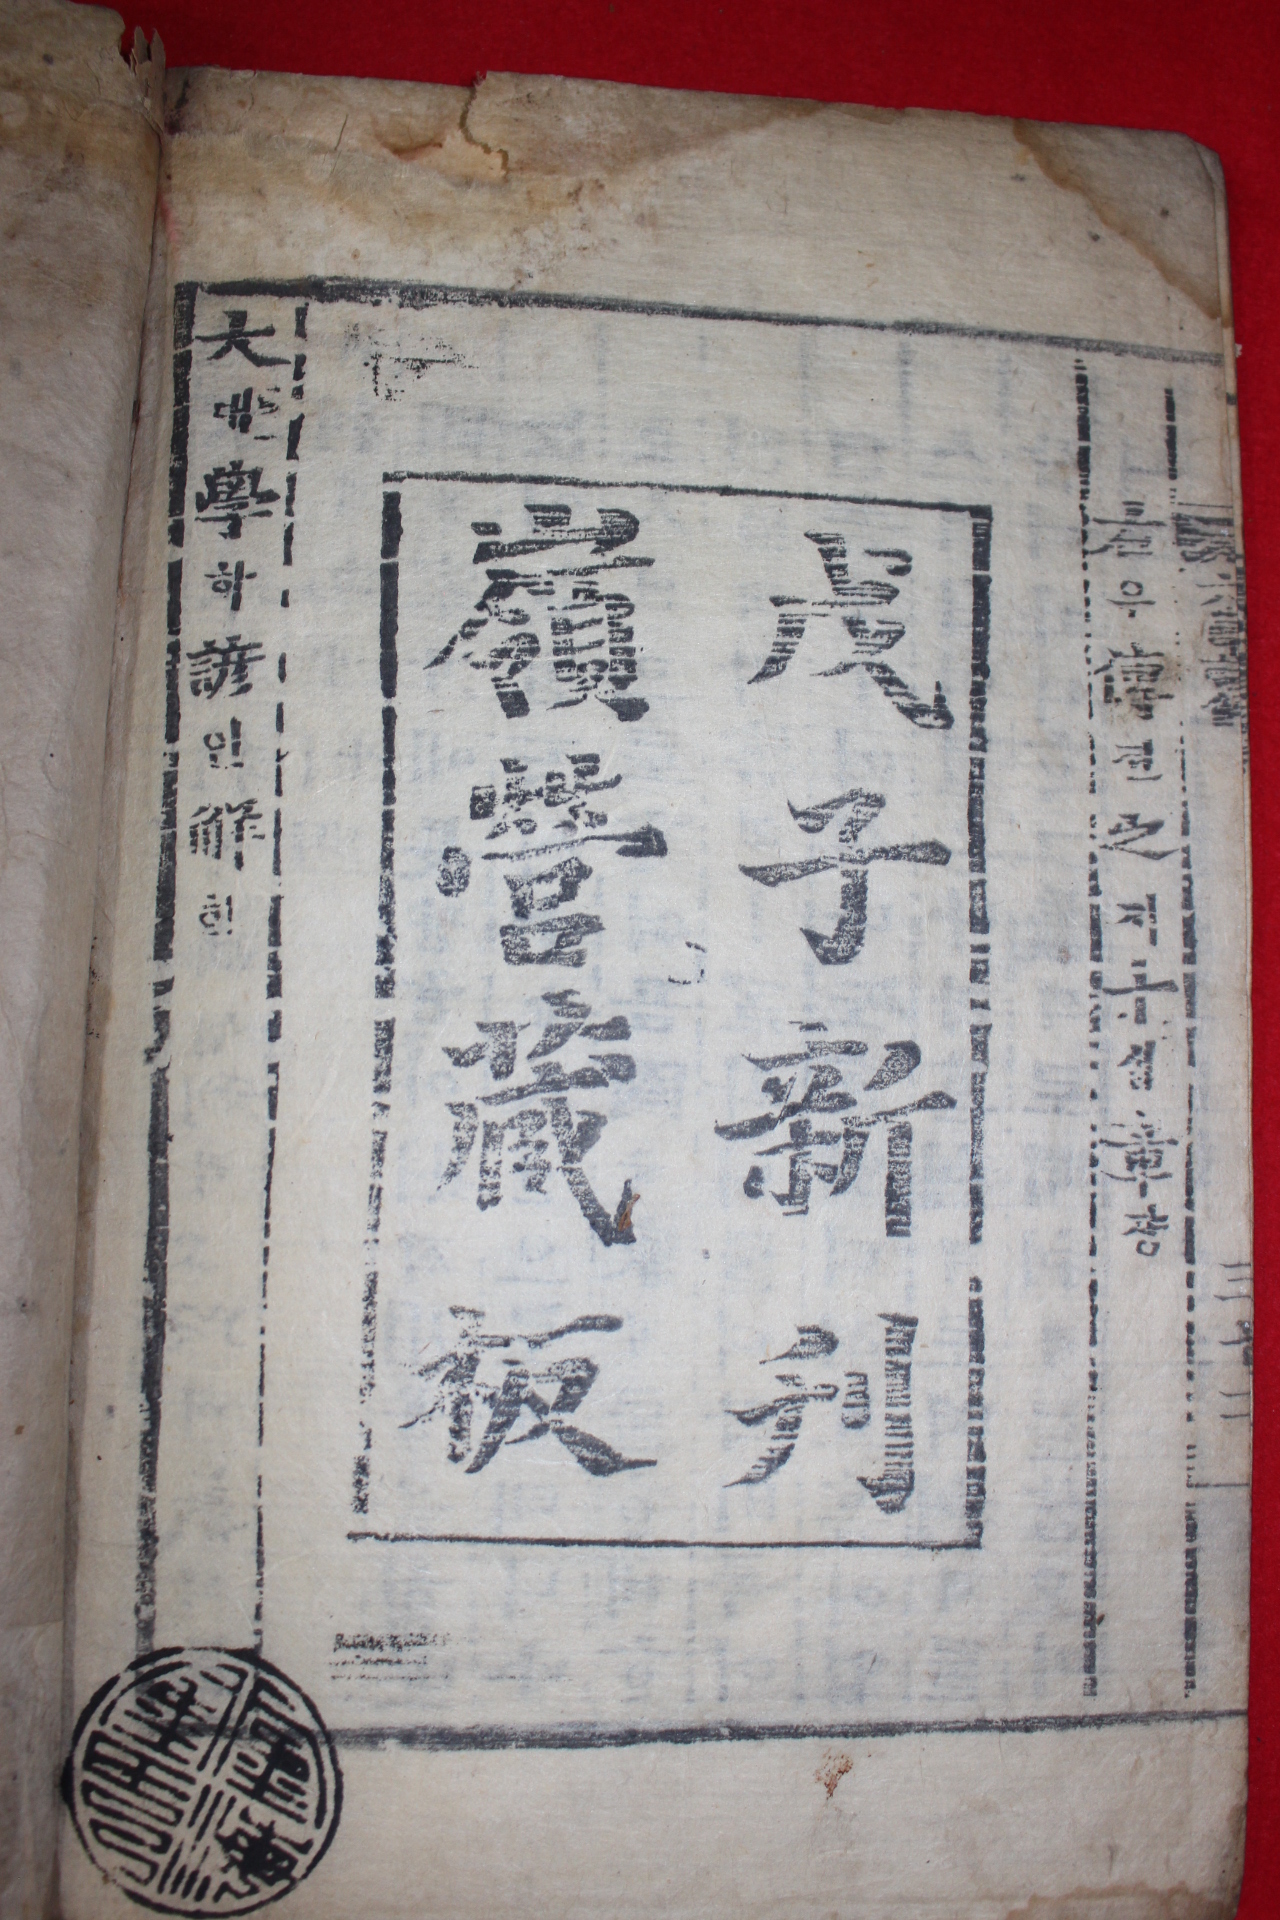 右우傳뎐之지十십章장
戊子新刊
嶺營藏板
大대學학諺언解해